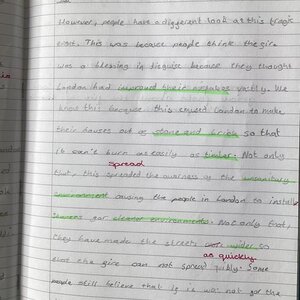 However, people have a different look at this tragic
event. This was because people think the fire
was a blessing in disguise because they thought
London had improved their mistakes vastly. We
know this because this caused London to make
their houses out of stone and brick so that
it can't burn as easily as timber. Not only
spread
that, this spreaded the awareness of the unsanitary
environment causing the people in London to install
sewers for cleaner environments. Not only that,
they have made the streets wider so
as quickly
that the fire can not spread quikly. Some
people still believe that if it was not for the